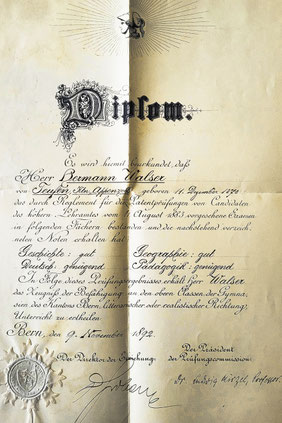 Diplom.
Es wird hiemit beurkundet, daß
Herr Hermann Walser
von Teufen, Ktn. Appenzell geboren Dezember 1870
des durch Reglement für die Patentprüfungen von Candidaten
des höhern Lehramtes vom August 1883 vorgesehene Examen
in folgenden Fächern bestanden und die nachstehend verzeich
neten Noten erhalten hat
Geschichte : gut Geographie : gut
Deutsch : genügend Pädagogik : genügend
In Folge dieses Prüfungsergebnisses erhält Herr Walser
das Zeugniß der Befähigung an den obern Classen der Gymna,
sien des Kantons Bern, litterarischer oder realistischer Richtung,
Unterricht zu ertheilen.
Bern, den 9. November 1892.
Der Direktor der Erziehung: Der Präsident
der Prüfungscommission:
Dr. Ludwig Hirzel, Professor.